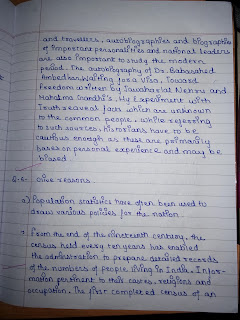 and travellers, autobiographies and biographies
of important personalities and national leaders
are also important to study the modern
period. The autobiography of Dr. Babasaheb
Ambedkar, Waiting for a Visa, Toward
Freedom written by Jawaharlal Nehru and
Mahatma Gandhi's, My Experiment with
Truth reaveal facts which are unknown
to the common people. While referring
to such sources, historians have to be
cautious enough as these are primarily
bases on personal experience and may be
biased.
Q.5. Give reasons.
a) Population statistics have often been used to
draw various policies for the nation.
From the end of the nineteenth century, the
census held every ten years has enabled
the administration to prepare detailed records
of the numbers of people living in India. Infor-
mation pertinent to their castes, religions and
occupation. The first completed census of an